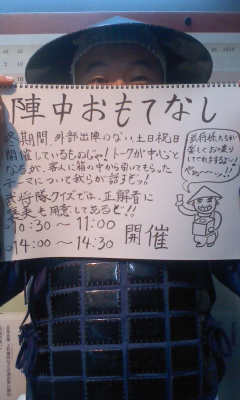 陣中おもてなし
冬期間、外部出陣のない、土日祝日
開催しているものじゃ!トークが中心と
なるが、客人に箱の中から引いてもらった
テーマについて我らが話すぞッ!
武将隊クイズでは、正解者に
褒美も用意してあるぞ!!
10:30～11:00
14:00～14:30 開催
武将様たちが
楽しくお力り
してくれするよ〜!